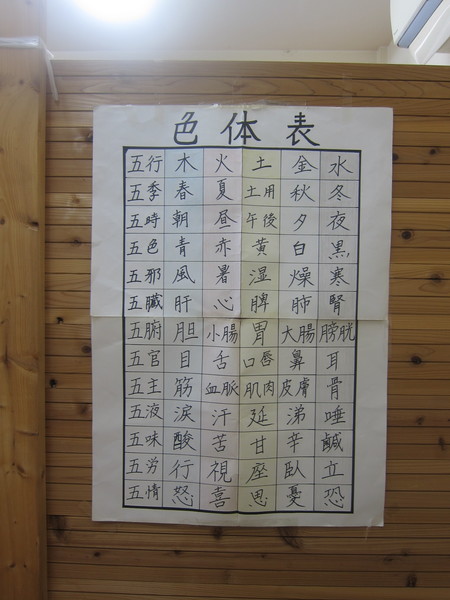 色体表
五行 木 火 土 金 水
五季 春 夏 土用 秋 冬
五時 朝 昼 午後 夕 夜
五色 青 赤 黄 白 黒
五邪 風 暑 湿 燥 寒
五臓 肝 心 脾 肺 腎
五腑 胆 小腸 胃 大腸 膀胱
五官 目 舌 口唇 鼻 耳
五主 筋 血脈 肌肉 皮膚 骨
五液 涙 汗 延 涕 唾
五味 酸 苦 甘 辛 鹹
五労 行 視 座 臥 立
五情 怒 喜 思 憂 恐